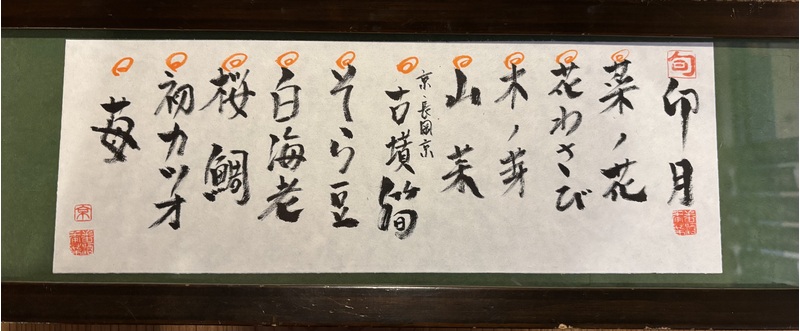 旬
卯月
菜ノ花
花わさび
木ノ芽
山菜
京・長岡京
古墳筍
そら豆
白海老
桜鯛
初カツオ
苺
京